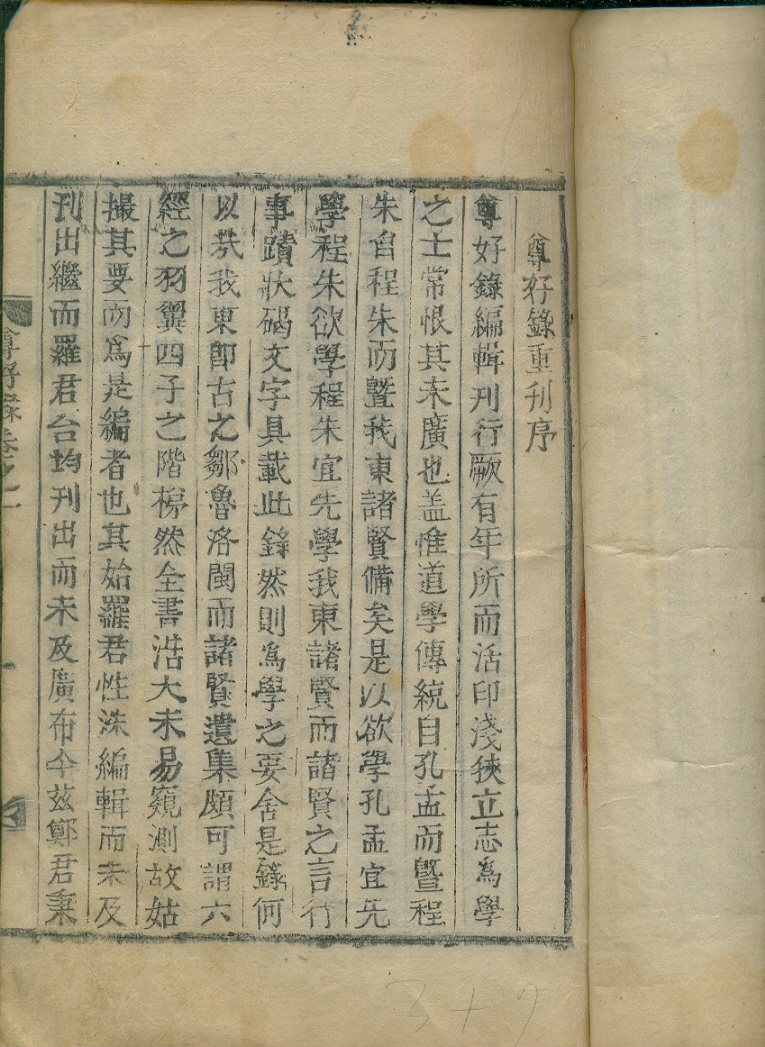 尊好錄重刊序
尊好錄編輯刊行厥有年所而活印淺狹立志爲學
之士常恨其未廣也盖惟道學傳統自孔孟而曁程
朱自程朱而曁我東諸賢備矣是以欲學孔孟宜先
學程朱欲學程朱宜先學我東諸賢而諸賢之言行
事蹟狀碣文字具載此錄然則爲學之要舍是錄何
以哉我東卽古之鄒魯洛閩而諸賢遺集頗可謂六
經之羽翼四子之階梯然全書浩大未易窺測故姑
撮其要而爲是編者也其始羅君性洙編輯而未及
刊出繼而羅君台均刊出而未及廣布今玆鄭君秉
尊好錄卷之一